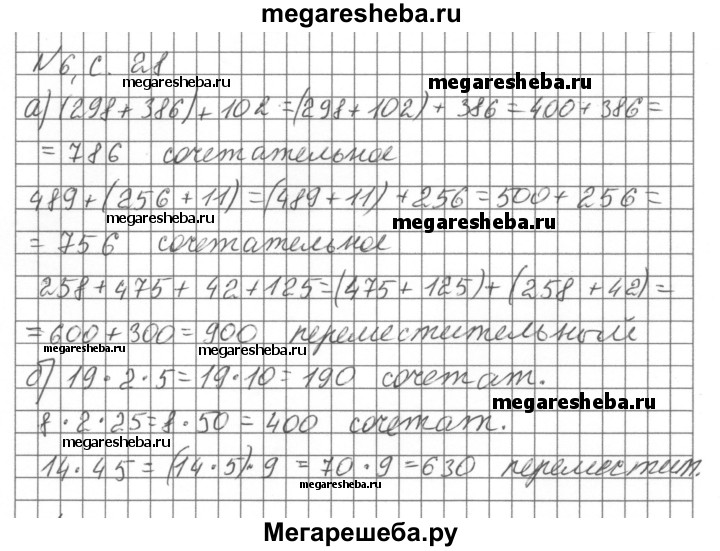 megaresheba.ru
№6, с. 28
megaresheba.ru megaresheba.ru
а) (298 + 386) + 102 = (298 + 102) + 386 = 400 + 386 =
= 786 сочетательное
489 + (256 + 11) = (489 + 11) + 256 = 500 + 256 =
megaresheba.ru megaresheba.ru
= 756 сочетательное
258 + 475 + 42 + 125 = (475 + 125) + (258 + 42) =
= 600 + 300 = 900 переместительный
megaresheba.ru megaresheba.ru
б) 19 · 2 · 5 = 19 · 10 = 190 сочетат.
megaresheba.ru
8 · 2 · 25 = 8 · 50 = 400 сочетат.
megaresheba.ru
14 · 45 = (14 · 5) · 9 = 70 · 9 = 630 переместит.
megaresheba.ru
Мегарешеба.ру